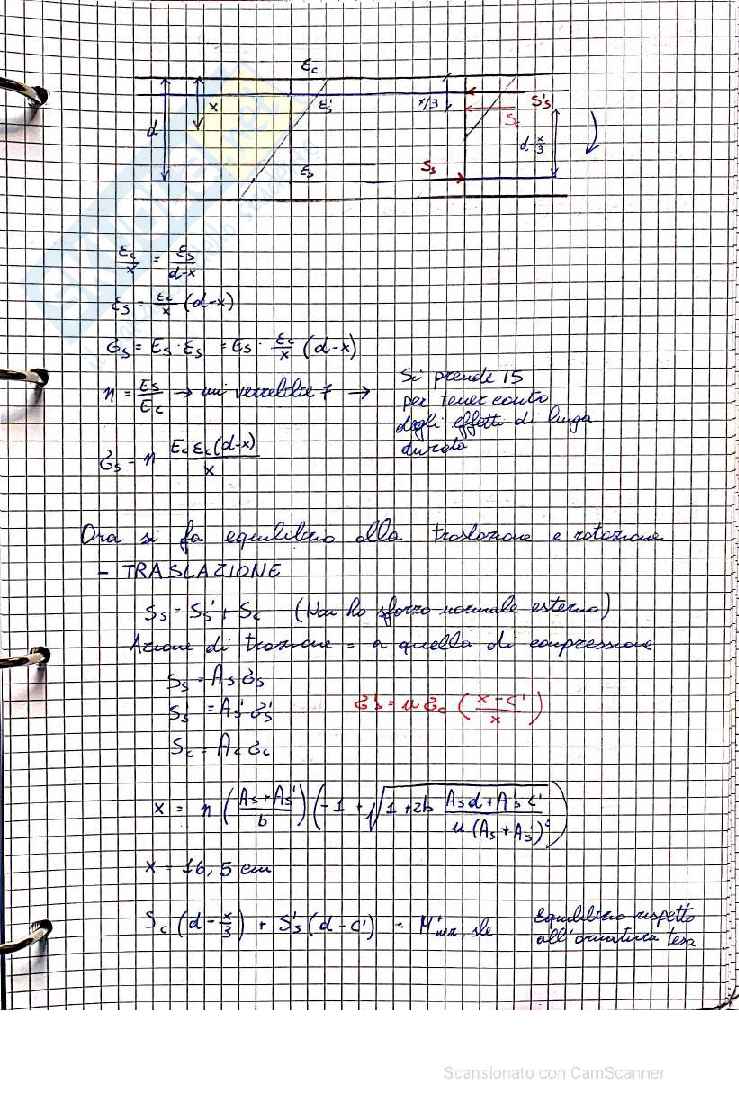 εc
x
ε's
d
εs
x/3
S's
Sc
d-x/3
Ss
εc/x = εs/(d-x)
εs = εc/x (d-x)
σs = Es · εs = Es · εc/x (d-x)
n = Es/Ec → mi verrebbe 7 → Si prende 15
per tener conto
degli effetti di lunga
durata
σs = n Ec εc (d-x)/x
Ora si fa equilibrio alla traslazione e rotazione
- TRASLAZIONE
Ss = S's + Sc (Non ho sforzo normale esterno)
Azione di trazione = a quella di compressione
Ss = As σs
S's = A's σ's
σ's = n σc (x-c'/x)
Sc = Ac σc
x = n (As+A's/b) (-1 + √(1+2b Asd+A's c'/n(As+A's)²))
x = 16,5 cm
Sc (d-x/3) + S's (d-c') = Equilibrio rispetto
all'armatura tesa
Scansionato con CamScanner